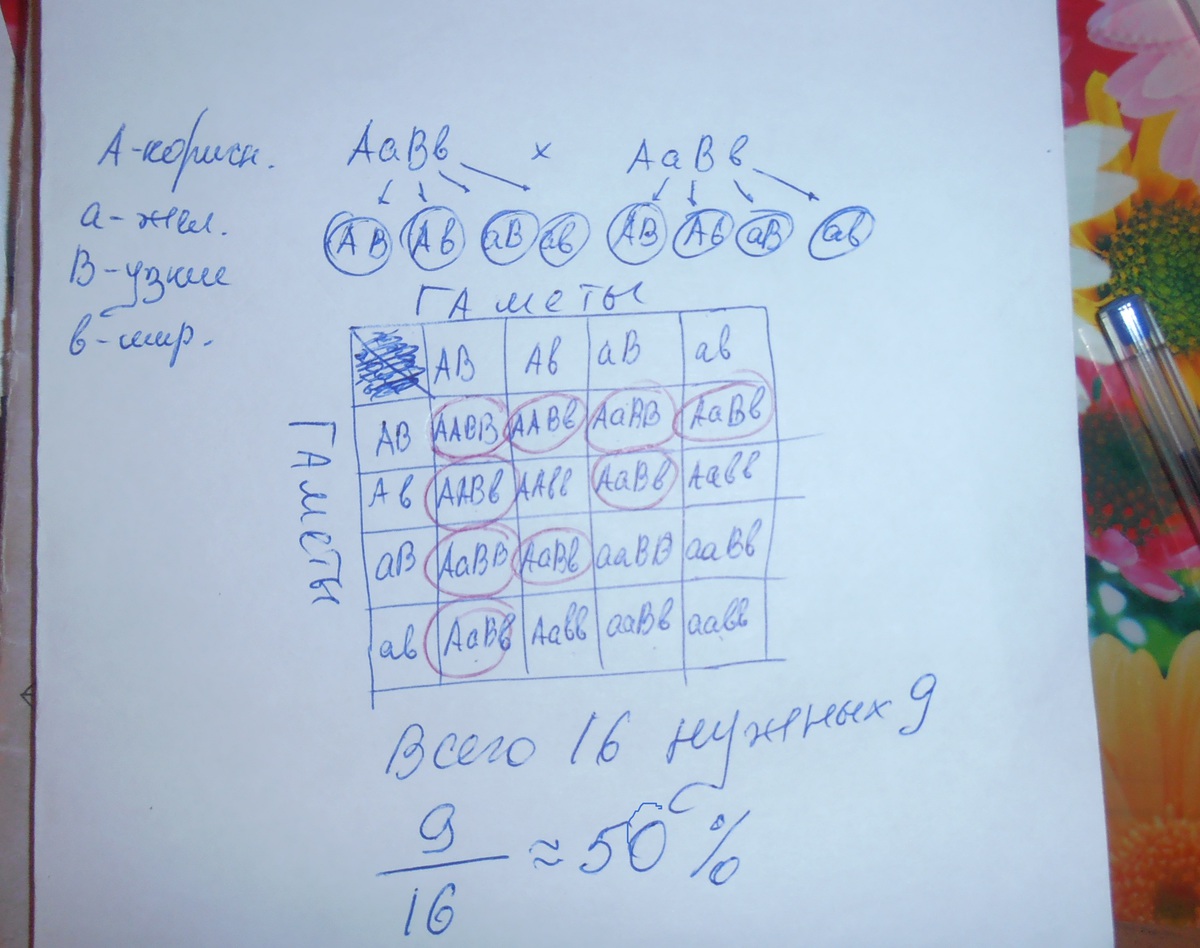 А-коричн.
а- жел.
В-узкие
в-шир.
АаВв × АаВв
АВ Ав аВ ав АВ Ав аВ ав
ГАметы
ГАметы
АВ Ав аВ ав
АВ ААВВ ААВв АаВВ АаВв
Ав ААВв ААвв АаВв Аавв
аВ АаВВ АаВв ааВВ ааВв
ав АаВв Аавв ааВв аавв
Всего 16 нужных 9
9
16
≈ 50 %